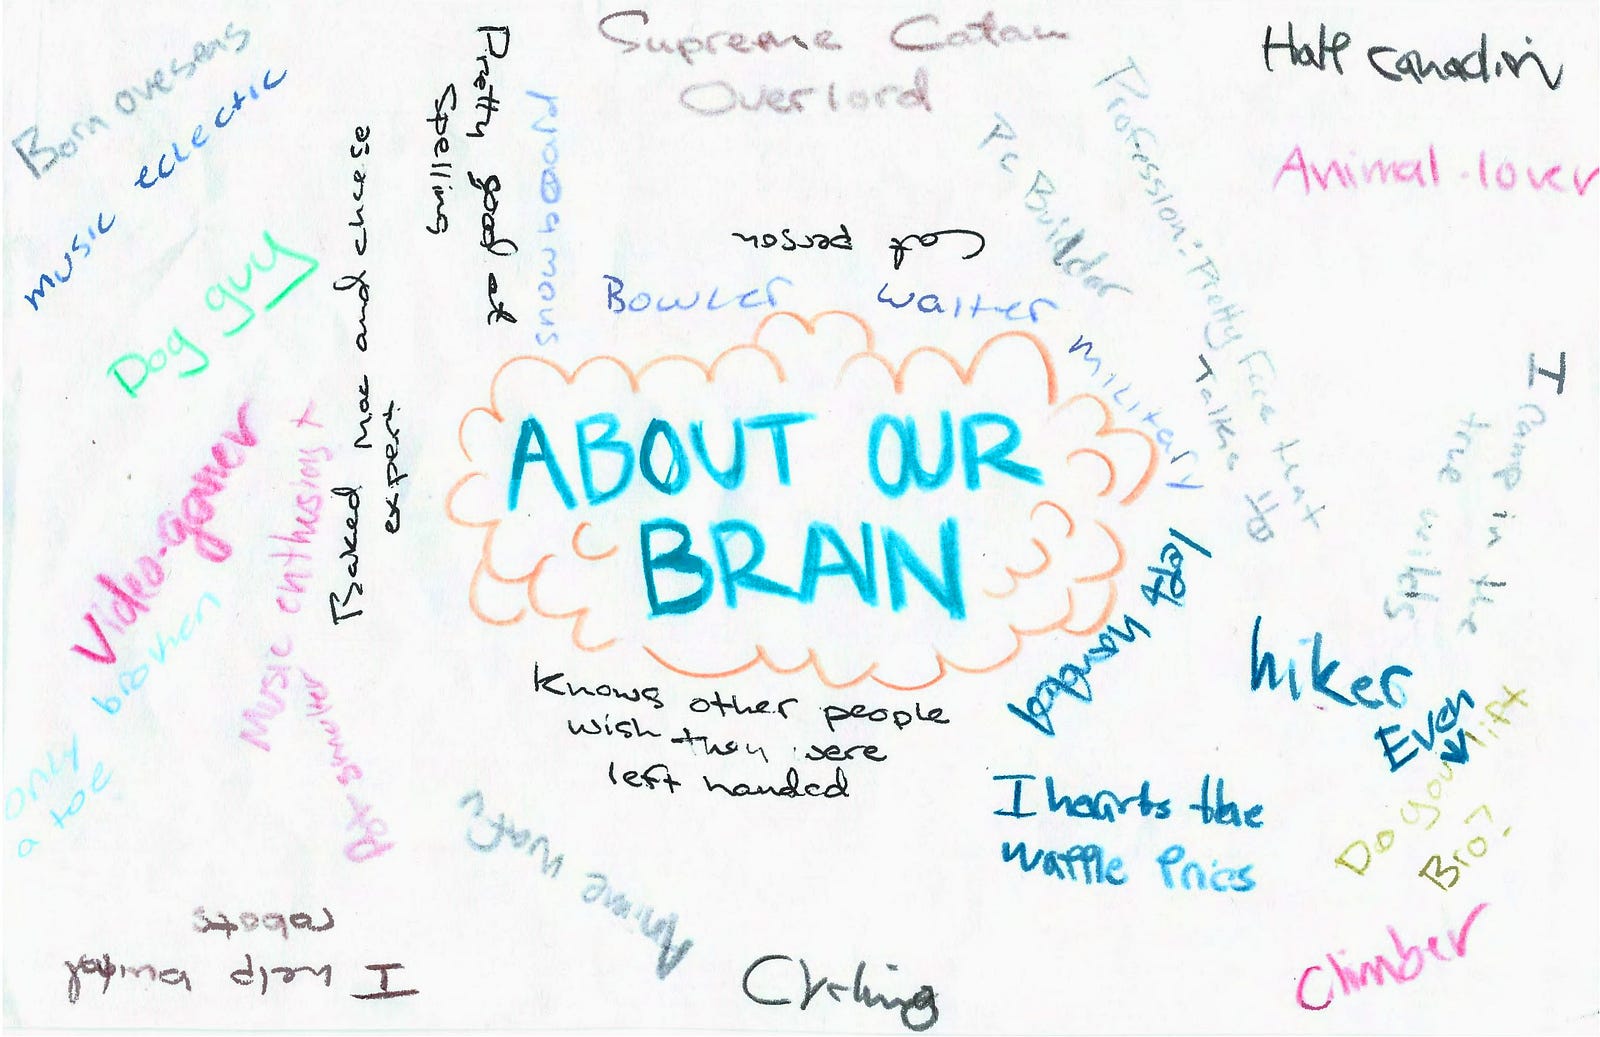 Supreme Catan
Overlord
Half Canadin
Born overseas
music eclectic
Pretty good at
Spelling
snowboard
Baked Mac and cheese
expert
Pc Builder
Profession: Pretty Face that
talks to
Animal-lover
Cat person
Dog guy
Bowler
Waiter
Military
I camp in the
true wilds
ABOUT OUR
BRAIN
Video-gamer
Music enthusiast
broken
only
a toe
left handed
hiker
Even
Do you lift
Bro?
Knows other people
wish they were
left handed
I hearts the
waffle fries
Anime watz
I help build
robots
Cycling
Climber